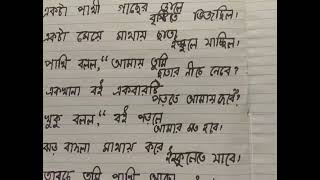 একটা পাখী গাছের ডালে
বৃষ্টিতে ভিজছিল।
একটা মেয়ে মাথায় ছাতা
ইস্কুলে যাচ্ছিল।
পাখি বলল, "আমায় তুমি
ছাতার নীচে নেবে?
একখানা বই একবারটি
পড়তে আমায় দেবে?
খুকু বলল, "বই পড়লে
আমার মত হবে।
ঝড় বাদলা মাথায় করে
ইস্কুলেতে যাবে।
তুমি পাখি